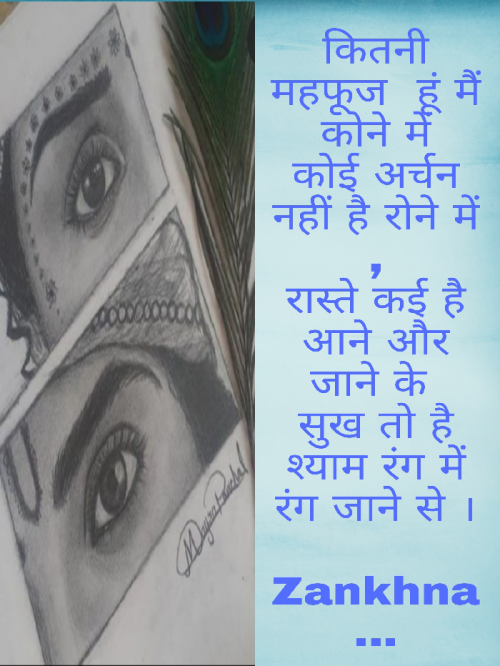 कितनी
महफूज हूं मैं
कोने में
कोई अर्चन
नहीं है रोने में
,
रास्ते कई है
आने और
जाने के
सुख तो है
श्याम रंग में
रंग जाने से ।
Zankhna
...